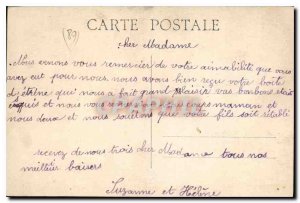 CARTE POSTALE
89
cher Madame
Nous venons vous remercier de votre aimabilité que vous
avez eut pour nous. nous avons bien reçu votre boîte
d'étrène qui nous a fait grand plaisir vos bonbons étais
exquis et nous vous maman et
nous deux et nous souétons que votre fils soit rétabli
recevez de nous trois cher Madame tous nos
meilleur baisers
Suzanne et Hélène